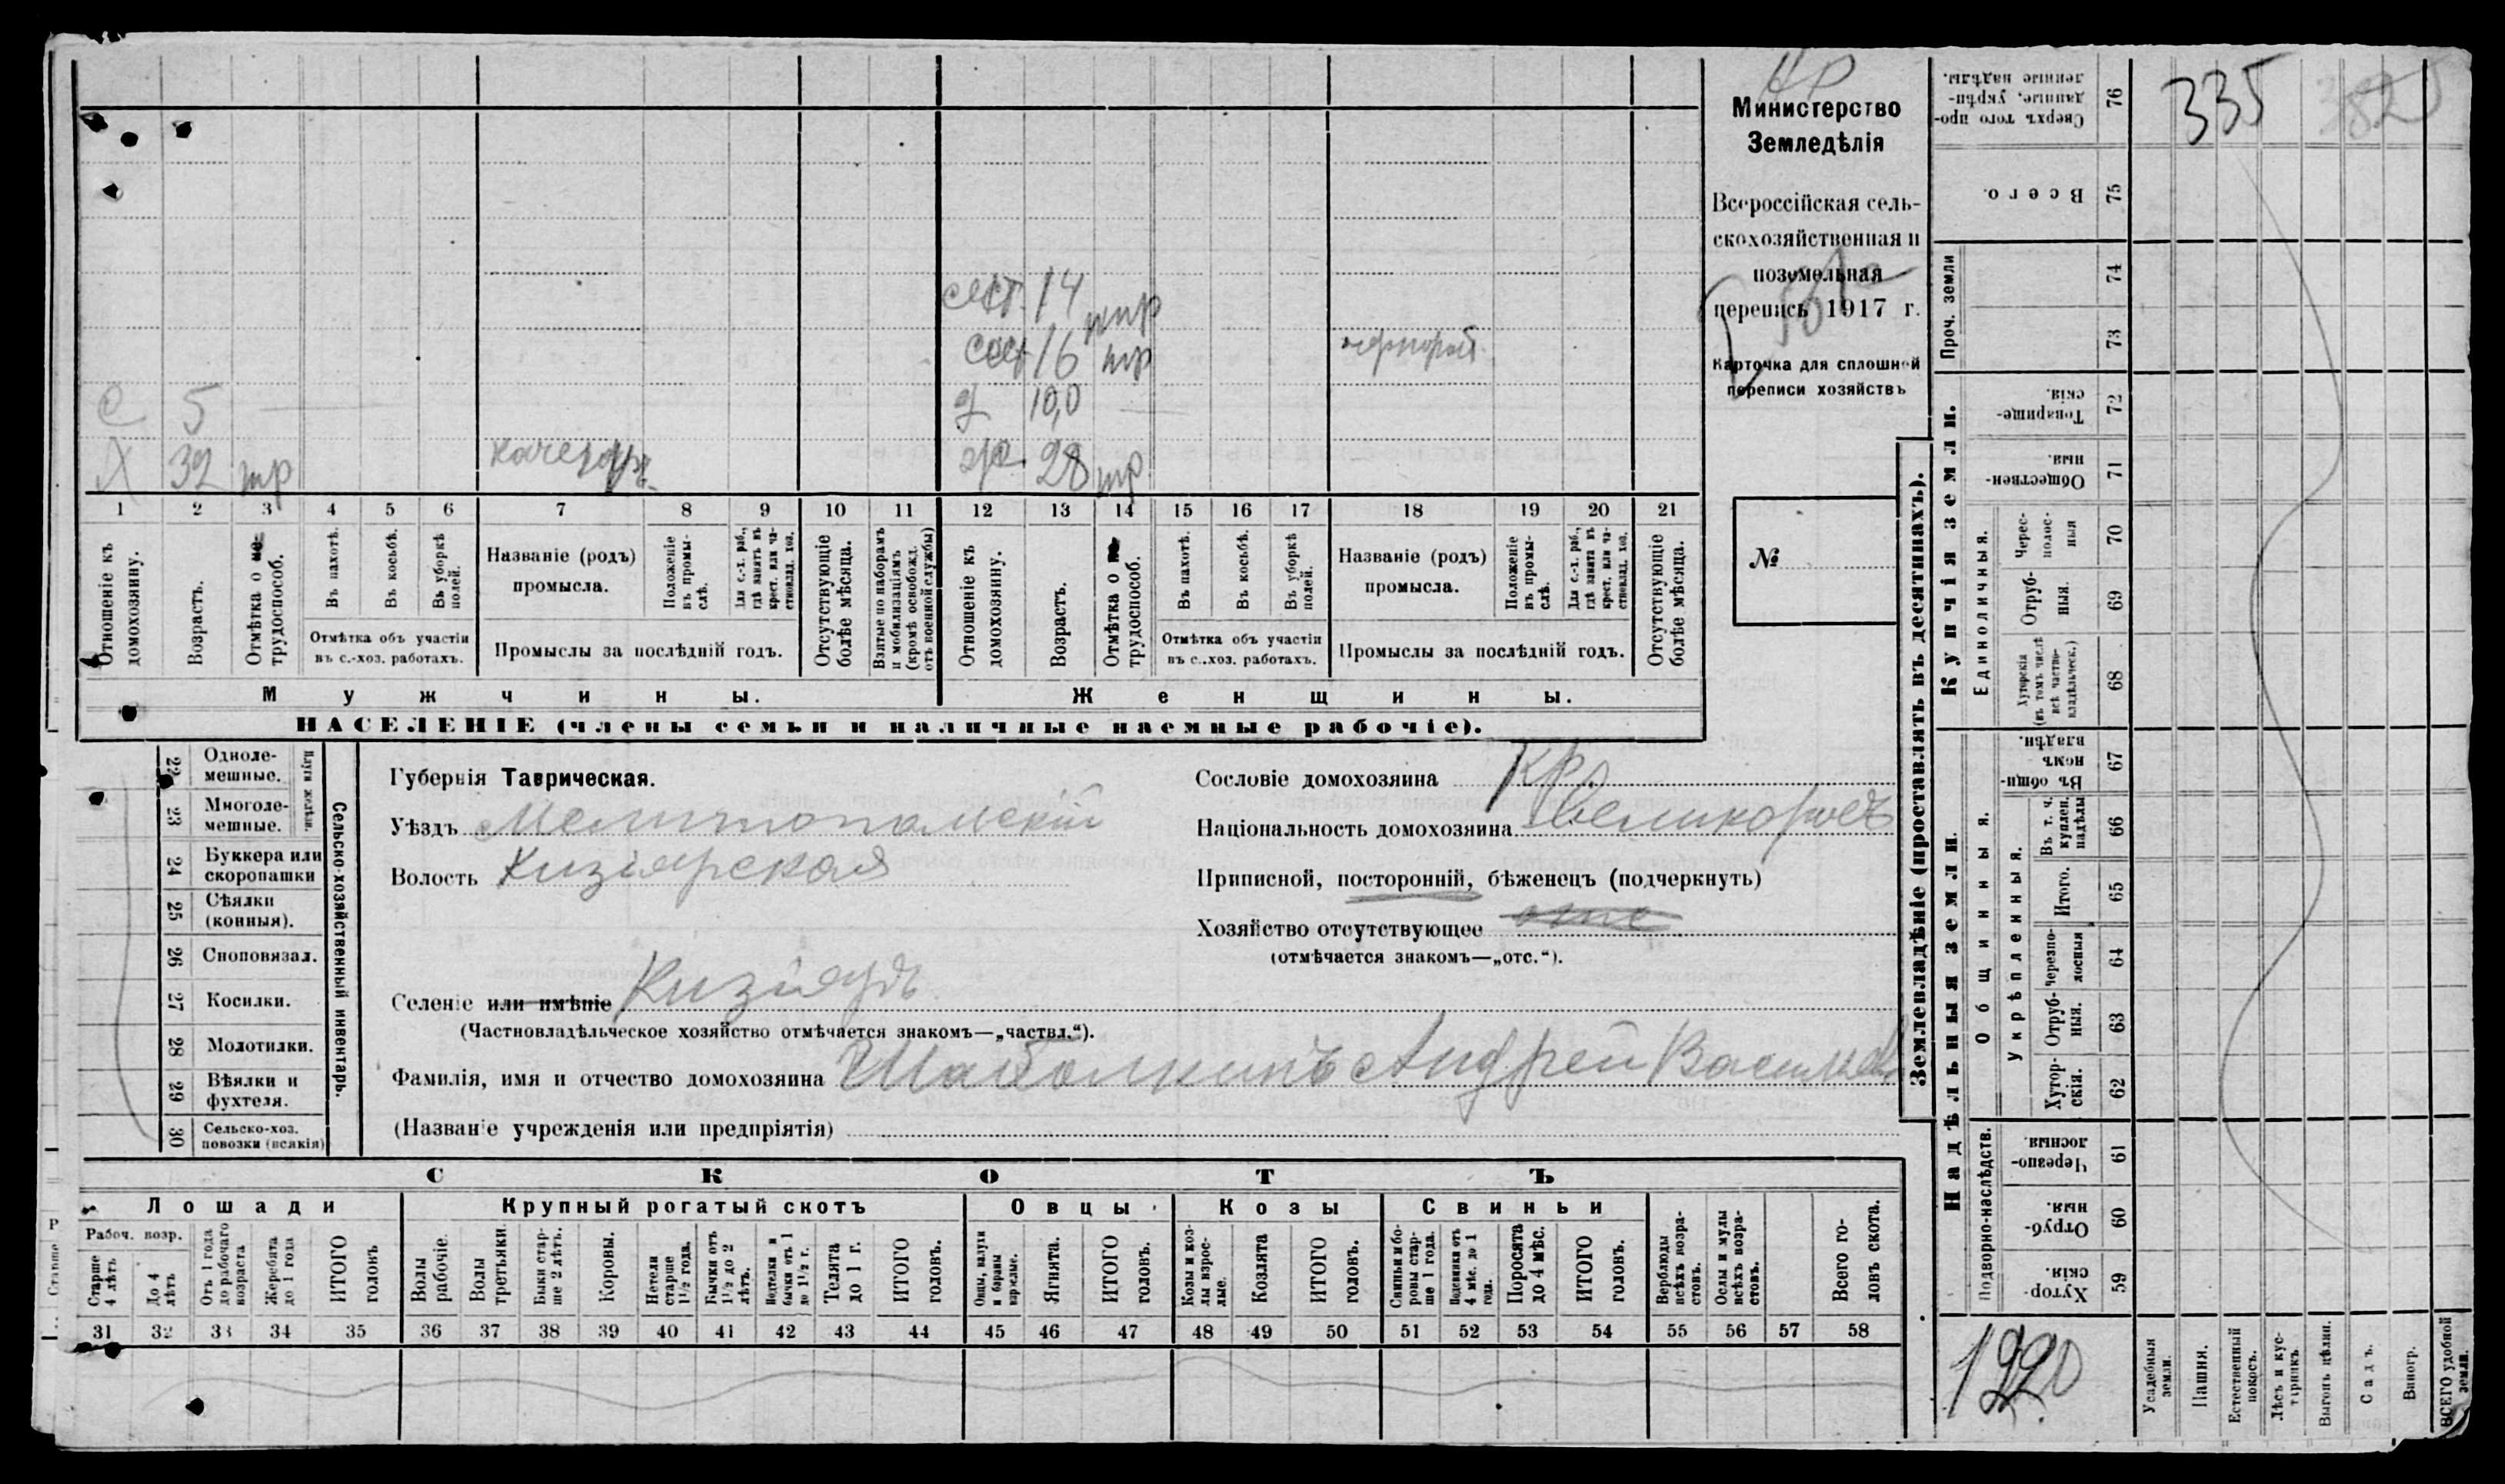 Министерство
Земледѣлія
Всероссійская сель-
скохозяйственная и
поземельная
перепись 1917 г.
Карточка для сплошной
переписи хозяйствъ
№
сест. 14
сест 16 тр
С 5
д 10,0
Х 32 тр
28 тр
1 2 3 4 5 6 7 8 9 10 11 12 13 14 15 16 17 18 19 20 21
Отношеніе къ домохозяину.
Возрастъ.
Отмѣтка о не-трудоспособ.
Въ пахотѣ.
Въ косьбѣ.
Въ уборкѣ полей.
Отмѣтка объ участіи
въ с.-хоз. работахъ.
Названіе (родъ)
промысла.
Положеніе въ промы-слѣ.
Для с.-х. раб., гдѣ занятъ въ крест. или ча-стновлад. хоз.
Промыслы за послѣдній годъ.
Отсутствующіе болѣе мѣсяца.
Взятые по наборамъ и мобилизаціямъ (кромѣ освобожд. отъ военной службы)
Отношеніе къ домохозяину.
Возрастъ.
Отмѣтка о не-трудоспособ.
Въ пахотѣ.
Въ косьбѣ.
Въ уборкѣ полей.
Отмѣтка объ участіи
въ с..хоз. работахъ.
Названіе (родъ)
промысла.
Положеніе въ промы-слѣ.
Для с.-х. раб., гдѣ занята въ крест. или ча-стновлад. хоз.
Промыслы за послѣдній годъ.
Отсутствующіе болѣе мѣсяца.
Мужчины. Женщины.
НАСЕЛЕНІЕ (члены семьи и наличные наемные рабочіе).
Сельско-хозяйственный инвентарь.
Плуги желѣзн.
22 Одноле-мешные.
23 Многоле-мешные.
24 Буккера или скоропашки
25 Сѣялки (конныя).
26 Сноповязал.
27 Косилки.
28 Молотилки.
29 Вѣялки и фухтеля.
30 Сельско-хоз. повозки (всякія)
Губернія Таврическая.
Уѣздъ Мелитопольскій
Волость Кизіярская
Селеніе или имѣніе Кизіяръ
(Частновладѣльческое хозяйство отмѣчается знакомъ—„частвл.“).
Фамилія, имя и отчество домохозяина Шаболкинъ Андрей Василев
(Названіе учрежденія или предпріятія)
Сословіе домохозяина Кр.
Національность домохозяина Великороссъ
Приписной, посторонній, бѣженецъ (подчеркнуть)
Хозяйство отсутствующее отс
(отмѣчается знакомъ—„отс.“).
СКОТЪ
Лошади Крупный рогатый скотъ Овцы Козы Свиньи
Рабоч. возр.
Старше 4 лѣтъ
До 4 лѣтъ
Отъ 1 года до рабочаго возраста
Жеребята до 1 года
ИТОГО головъ
Волы рабочіе.
Волы третьяки.
Быки стар-ше 2 лѣтъ.
Коровы.
Нетели старше 1½ года.
Бычки отъ 1½ до 2 лѣтъ.
Подтелки и бычки отъ 1 до 1½ г.
Телята до 1 г.
ИТОГО головъ.
Овцы, валухи и бараны взрослые.
Ягнята.
ИТОГО головъ.
Козы и коз-лы взрос-лые.
Козлята
ИТОГО головъ.
Свиньи и бо-ровы стар-ше 1 года.
Подсвинки отъ 4 мѣс. до 1 года.
Поросята до 4 мѣс.
ИТОГО головъ.
Верблюды всѣхъ возра-стовъ.
Ослы и мулы всѣхъ возра-стовъ.
Всего го-ловъ скота.
31 32 33 34 35 36 37 38 39 40 41 42 43 44 45 46 47 48 49 50 51 52 53 54 55 56 57 58
Землевладѣніе (проставлять въ десятинахъ).
335 382
Сверхъ того про-данные, укрѣп-ленные надѣлы. 76
Всего. 75
Проч. земли
74
73
Купчія земли.
Товарище-скія. 72
Обществен-ныя. 71
Единоличныя.
Черес-полос-ныя 70
Отруб-ныя. 69
Хуторскія (въ томъ числѣ всѣ частно-владѣльческ.) 68
Надѣльныя земли.
Общинныя.
Въ общин-номъ владѣн. 67
Укрѣпленныя.
Въ т. ч. куплен. надѣлы 66
Итого. 65
Черезпо-лосныя 64
Отруб-ныя. 63
Хутор-скія. 62
Подворно-наслѣдств.
Черезпо-лосныя. 61
Отруб-ныя. 60
Хутор-скія. 59
Усадебныя земли.
Пашня.
Естественный покосъ.
Лѣсъ и кус-тарникъ.
Выгонъ цѣлин.
Садъ.
Виногр.
ВСЕГО удобной земли.